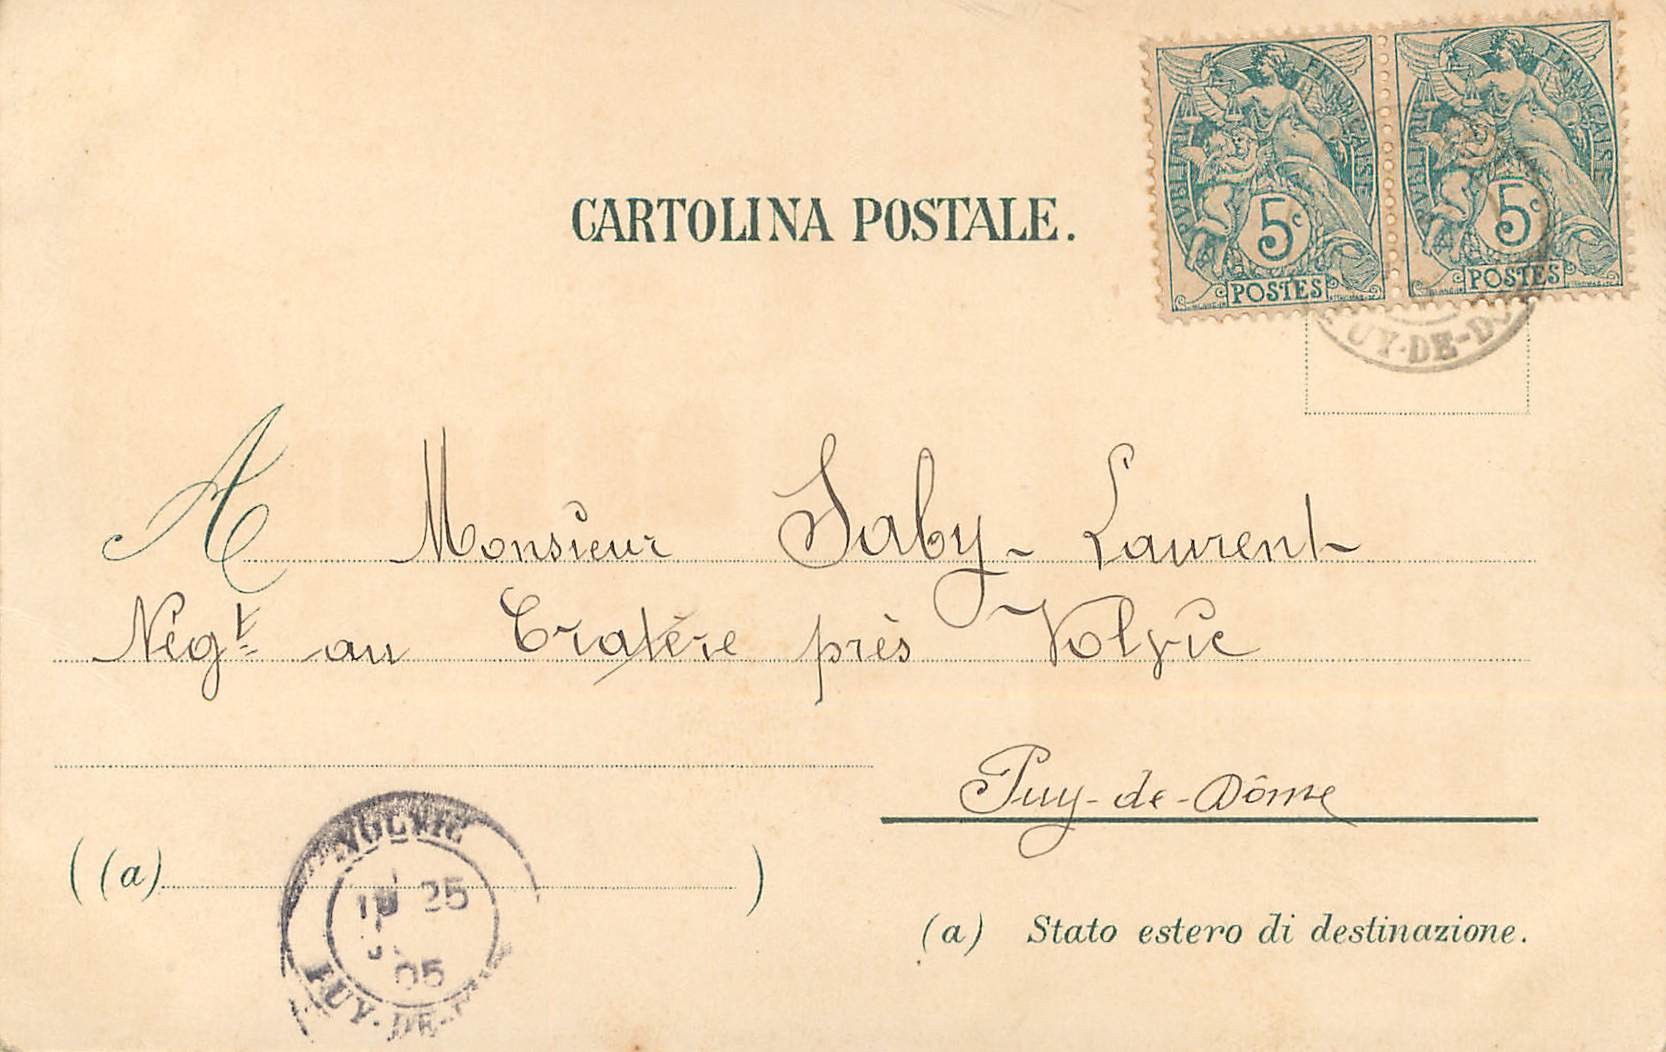 RÉPUBLIQUE FRANÇAISE
5c
POSTES
RÉPUBLIQUE FRANÇAISE
5c
POSTES
CARTOLINA POSTALE.
PUY-DE-DÔ
A Monsieur Saby-Laurent
Négt au Cratère près Volvic
Puy-de-Dôme
((a) )
VOLVIC
25
05
PUY-DE-
(a) Stato estero di destinazione.